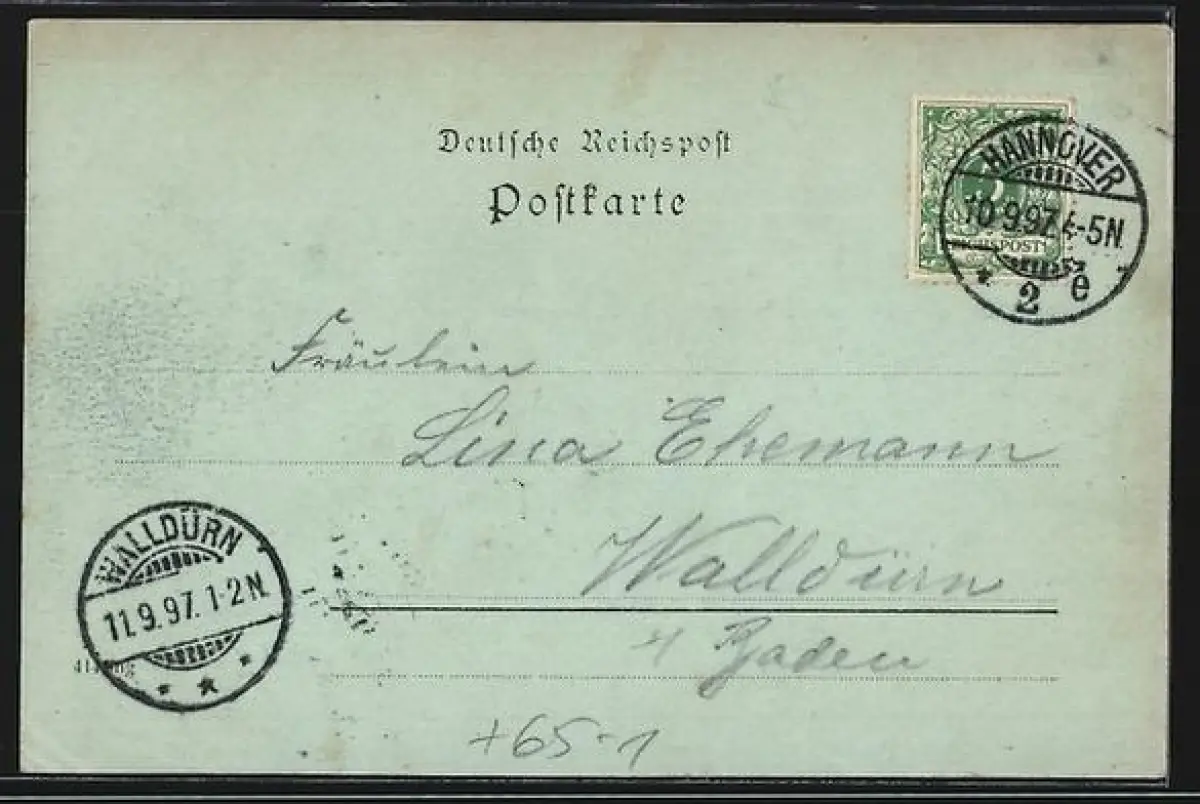 Deutsche Reichspost
Postkarte
HANNOVER
10.9.97. 4-5N.
2 e
REICHSPOST
Fräulein
Lina Ehemann
Walldürn
Baden
WALLDÜRN
11.9.97. 1-2N.
+65-1